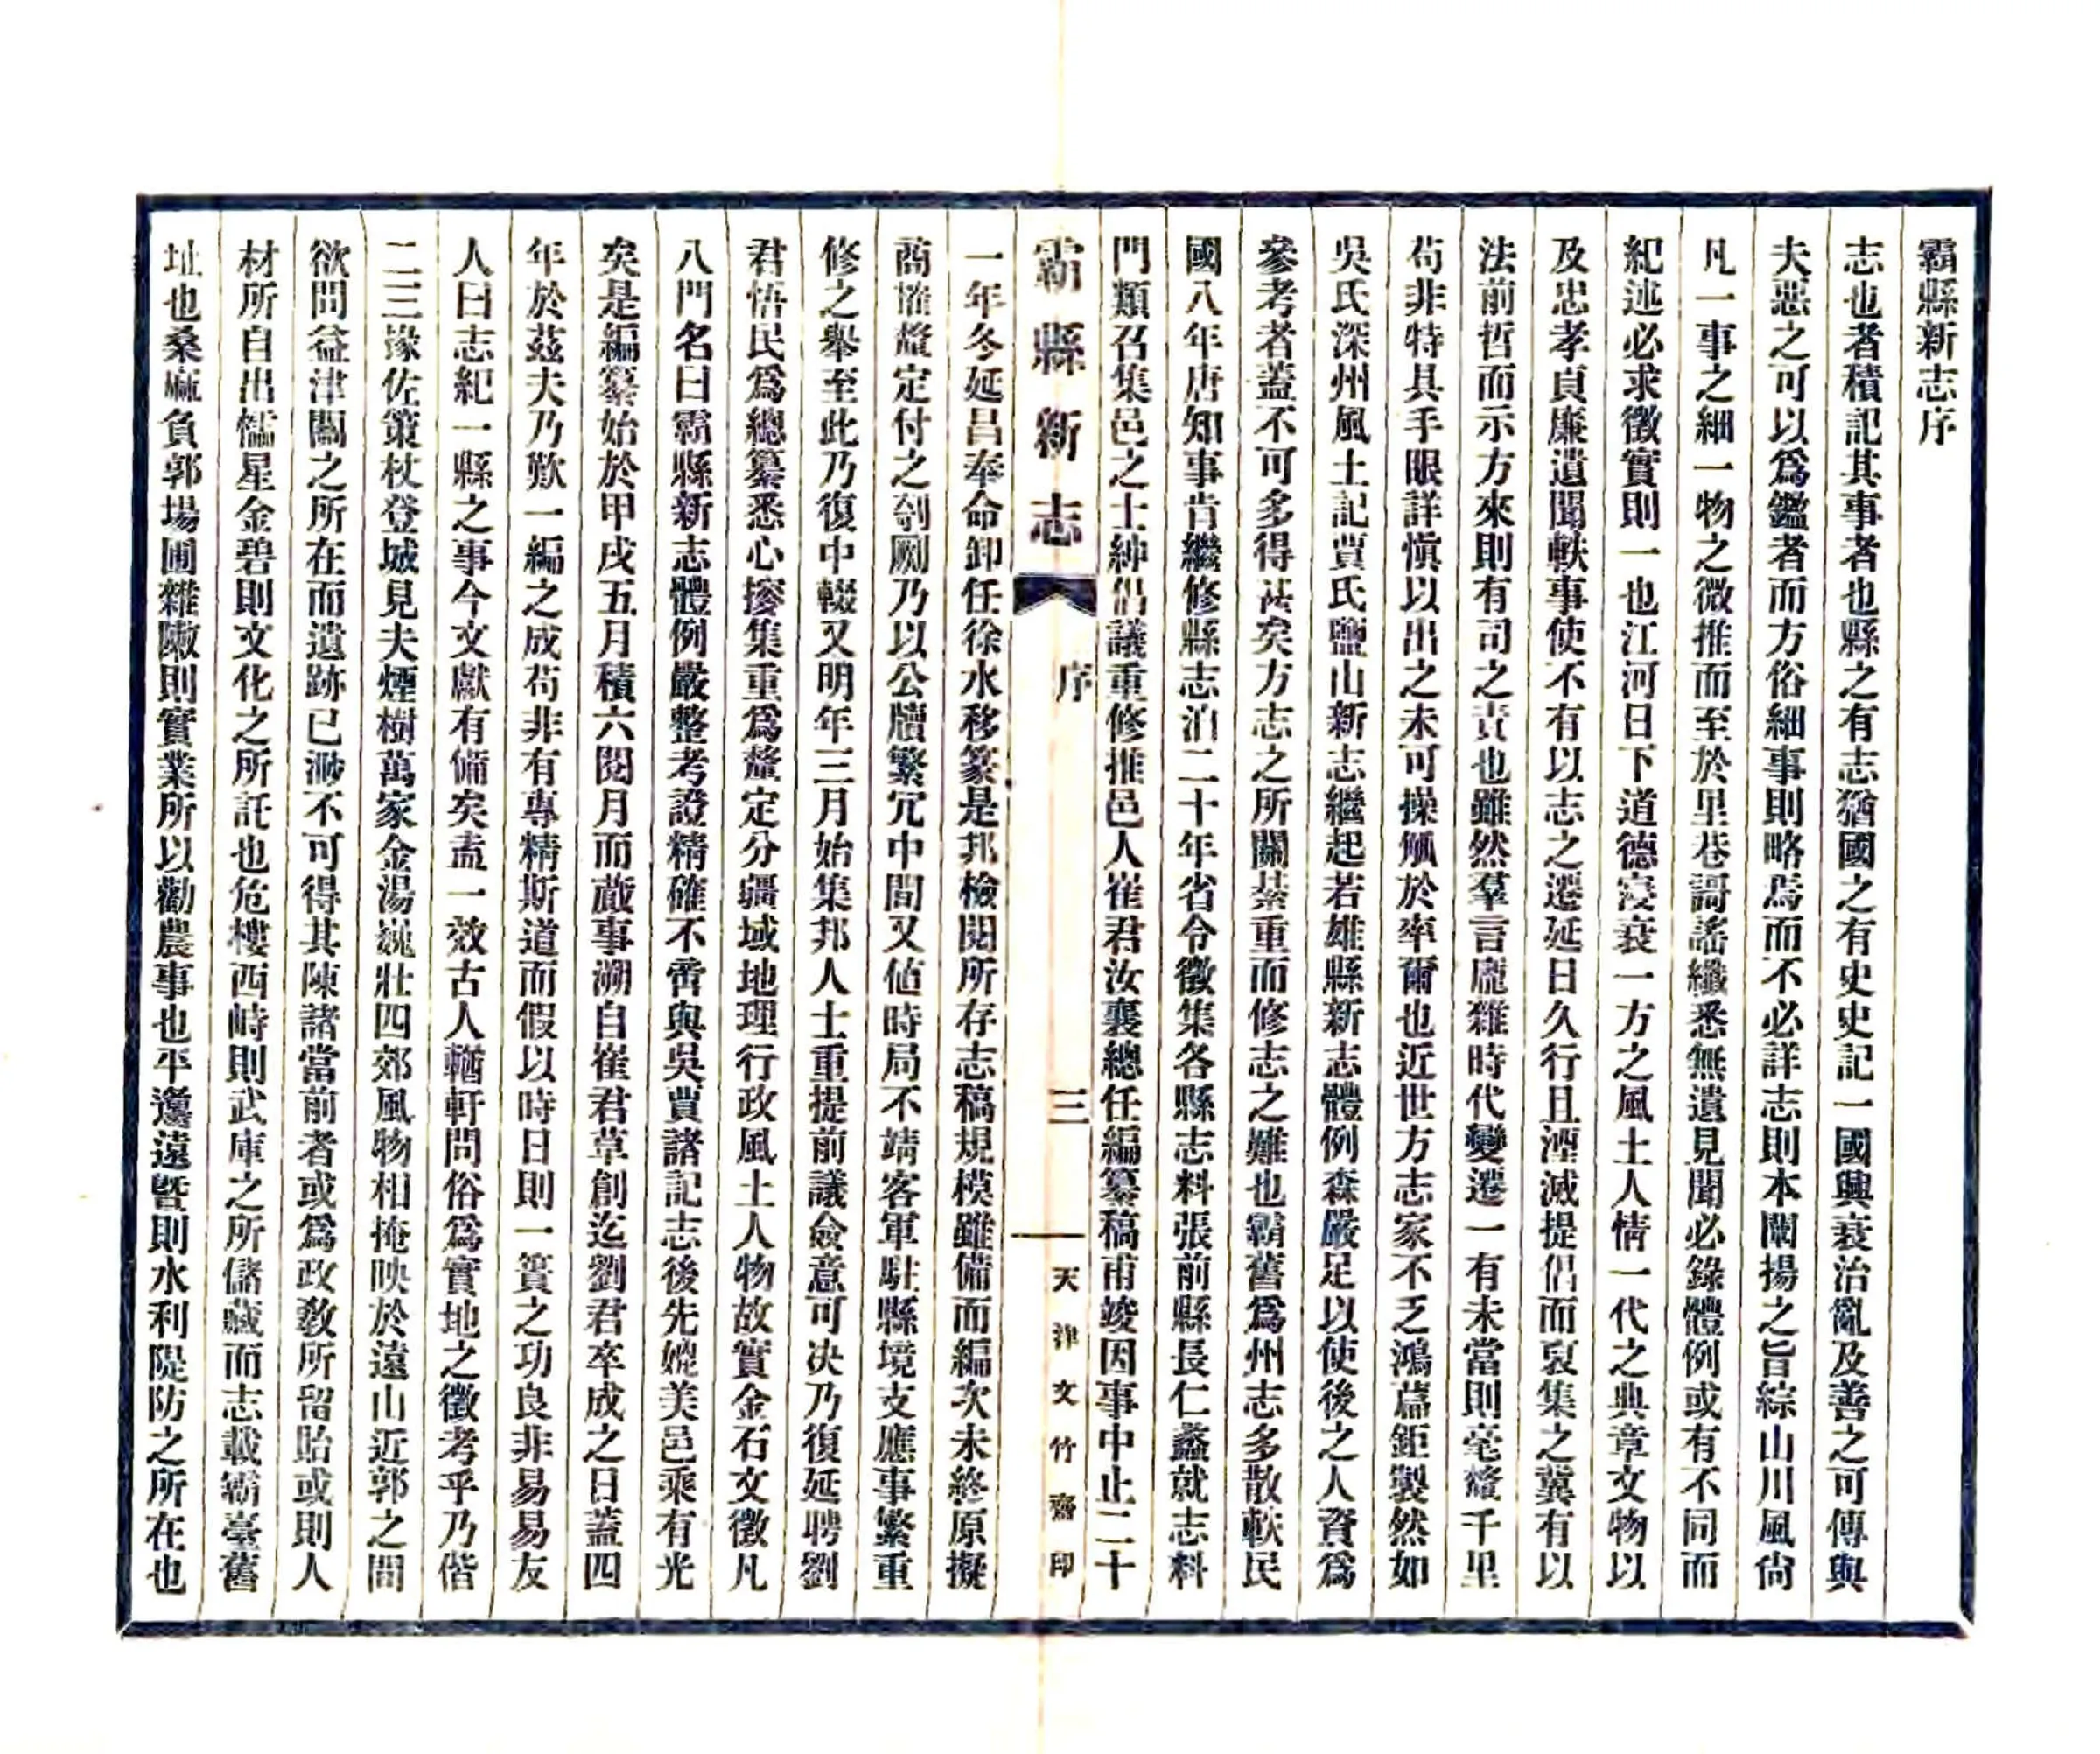 霸縣新志序
志也者積記其事者也縣之有志猶國之有史史記一國興衰治亂及善之可傳與
夫惡之可以爲鑑者而方俗細事則略焉而不必詳志則本闡揚之旨綜山川風尙
凡一事之細一物之微推而至於里巷謌謠纖悉無遺見聞必錄體例或有不同而
紀述必求徵實則一也江河日下道德寖衰一方之風土人情一代之典章文物以
及忠孝貞廉遺聞軼事使不有以志之遷延日久行且湮滅提倡而裒集之冀有以
法前哲而示方來則有司之責也雖然羣言龐雜時代變遷一有未當則毫釐千里
苟非特具手眼詳愼以出之未可操觚於率爾也近世方志家不乏鴻篇鉅製然如
吳氏深州風土記賈氏鹽山新志繼起若雄縣新志體例森嚴足以使後之人資爲
參考者蓋不可多得甚矣方志之所關綦重而修志之難也霸舊爲州志多散軼民
國八年唐知事肯繼修縣志洎二十年省令徵集各縣志料張前縣長仁蠡就志料
門類召集邑之士紳倡議重修推邑人崔君汝襄總任編纂稿甫竣因事中止二十
霸縣新志 序 三 天津文竹齋印
一年冬延昌奉命卸任徐水移篆是邦檢閱所存志稿規模雖備而編次未終原擬
商搉釐定付之剞劂乃以公牘繁冗中間又値時局不靖客軍駐縣境支應事繁重
修之舉至此乃復中輟又明年三月始集邦人士重提前議僉意可決乃復延聘劉
君悟民爲總纂悉心搜集重爲釐定分疆域地理行政風土人物故實金石文徵凡
八門名曰霸縣新志體例嚴整考證精確不啻與吳賈諸記志後先媲美邑乘有光
矣是編纂始於甲戌五月積六閱月而蕆事溯自崔君草創迄劉君卒成之日蓋四
年於茲夫乃歎一編之成苟非有專精斯道而假以時日則一簣之功良非易易友
人曰志紀一縣之事今文獻有備矣盍一效古人輶軒問俗爲實地之徵考乎乃偕
二三掾佐策杖登城見夫煙樹萬家金湯巍壯四郊風物相掩映於遠山近郭之間
欲問益津關之所在而遺跡已渺不可得其陳諸當前者或爲政敎所留貽或則人
材所自出櫺星金碧則文化之所託也危樓西峙則武庫之所儲藏而志載霸臺舊
址也桑麻負郭場圃雜陳則實業所以勸農事也平疇遠曁則水利隄防之所在也